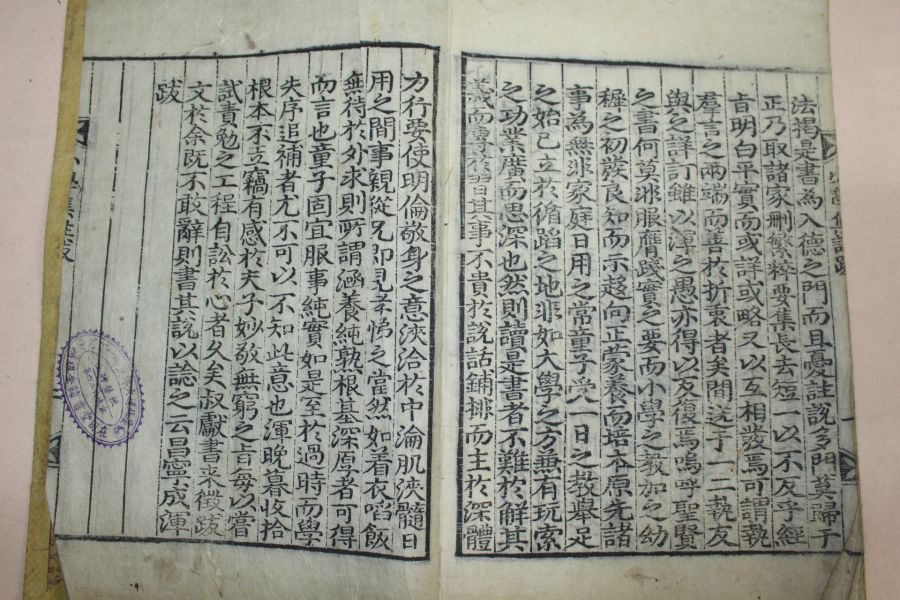 法揭是書爲入德之門而且憂註說多門莫歸于
正乃取諸家刪繁粹要集長去短一以不反乎經
旨明白平實而或詳或略又以互相發焉可謂執
羣言之兩端而善於折衷者矣間送于一二執友
與之詳訂雖以渾之愚亦得以反復焉嗚呼聖賢
之書何莫非服膺踐實之要而小學之敎加之幼
穉之初發良知而示趍向正蒙養而培本原先諸
事爲無非家庭日用之常童子受一日之敎擧足
之始已立於循蹈之地非如大學之方無有玩索
之功業廣而思深也然則讀是書者不難於解其
義而專於習其事不貴於說話鋪排而主於深體
力行要使明倫敬身之意浹洽於中淪肌浹髓日
用之間事親從兄卽見孝悌之當然如着衣喫飯
無待於外求則所謂涵養純熟根基深厚者可得
而言也童子固宜服事純實如是至於過時而學
失序追補者尤不可以不知此意也渾晩暮收拾
根本不立竊有感於夫子妙敬無窮之旨每以當
試責勉之工程自訟於心者久矣叔獻書來徵跋
文於余旣不敢辭則書其說以諗之云昌寧成渾
跋